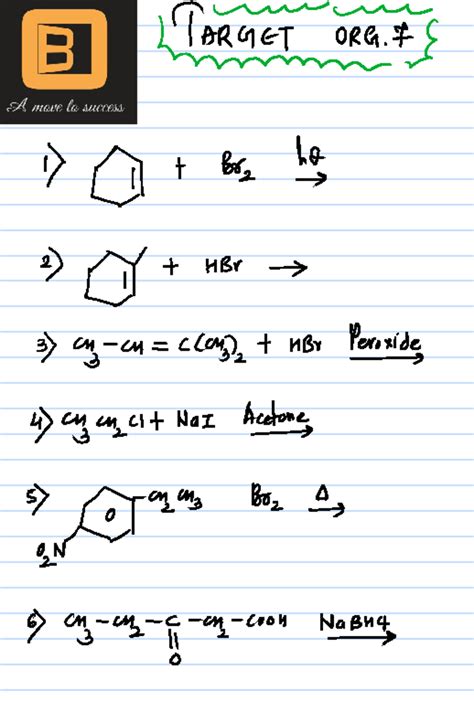 B
A move to success
TARGET ORG. 7
1) + Br2 hϑ →
2) + HBr →
3) CH3–CH = C(CH3)2 + HBr Peroxide →
4) CH3 CH2 Cl + NaI Acetone →
5) O CH2 CH3 Br2 Δ →
O2N
6) CH3–CH2–C–CH2–COOH NaBH4 →
O